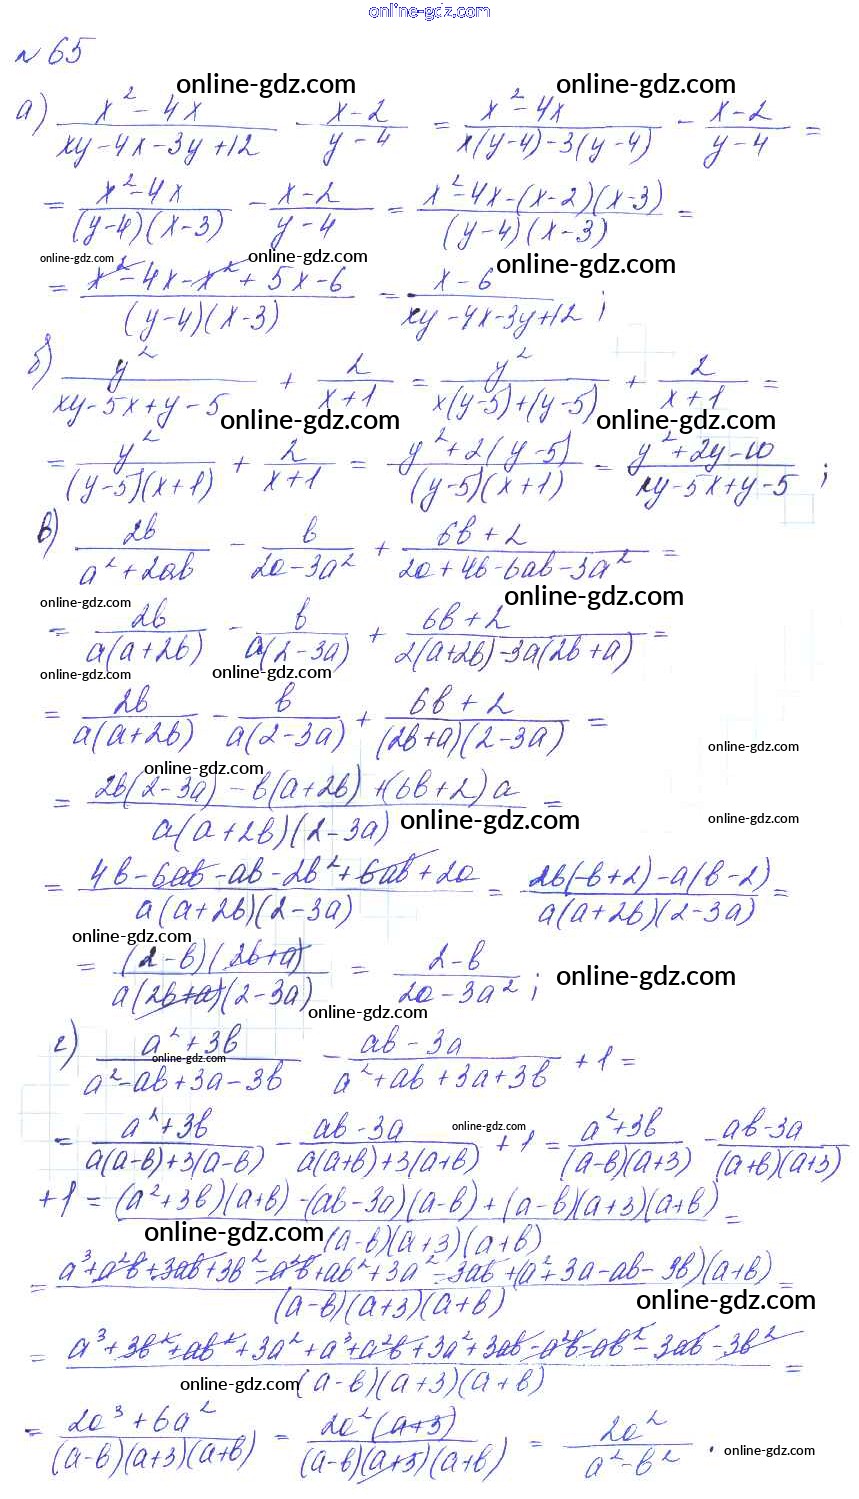 online-gdz.com
№ 65
online-gdz.com online-gdz.com
а) (x² - 4x)/(xy - 4x - 3y + 12) - (x - 2)/(y - 4) = (x² - 4x)/(x(y - 4) - 3(y - 4)) - (x - 2)/(y - 4) =
= (x² - 4x)/((y - 4)(x - 3)) - (x - 2)/(y - 4) = (x² - 4x - (x - 2)(x - 3))/((y - 4)(x - 3)) =
online-gdz.com online-gdz.com online-gdz.com
= (x² - 4x - x² + 5x - 6)/((y - 4)(x - 3)) = (x - 6)/(xy - 4x - 3y + 12) ;
б) y²/(xy - 5x + y - 5) + 2/(x + 1) = y²/(x(y - 5) + (y - 5)) + 2/(x + 1) =
online-gdz.com online-gdz.com
= y²/((y - 5)(x + 1)) + 2/(x + 1) = (y² + 2(y - 5))/((y - 5)(x + 1)) = (y² + 2y - 10)/(xy - 5x + y - 5) ;
в) 2b/(a² + 2ab) - b/(2a - 3a²) + (6b + 2)/(2a + 4b - 6ab - 3a²) =
online-gdz.com online-gdz.com
= 2b/(a(a + 2b)) - b/(a(2 - 3a)) + (6b + 2)/(2(a + 2b) - 3a(2b + a)) =
online-gdz.com online-gdz.com
= 2b/(a(a + 2b)) - b/(a(2 - 3a)) + (6b + 2)/((2b + a)(2 - 3a)) =
online-gdz.com
online-gdz.com
= (2b(2 - 3a) - b(a + 2b) + (6b + 2)a)/(a(a + 2b)(2 - 3a)) =
online-gdz.com online-gdz.com
= (4b - 6ab - ab - 2b² + 6ab + 2a)/(a(a + 2b)(2 - 3a)) = (2b(-b + 2) - a(b - 2))/(a(a + 2b)(2 - 3a)) =
online-gdz.com
= ((2 - b)(2b + a))/(a(2b + a)(2 - 3a)) = (2 - b)/(2a - 3a²) ; online-gdz.com
online-gdz.com
г) (a² + 3b)/(a² - ab + 3a - 3b) - (ab - 3a)/(a² + ab + 3a + 3b) + 1 =
online-gdz.com
online-gdz.com
= (a² + 3b)/(a(a - b) + 3(a - b)) - (ab - 3a)/(a(a + b) + 3(a + b)) + 1 = (a² + 3b)/((a - b)(a + 3)) - (ab - 3a)/((a + b)(a + 3))
+ 1 = ((a² + 3b)(a + b) - (ab - 3a)(a - b) + (a - b)(a + 3)(a + b))/((a - b)(a + 3)(a + b)) =
online-gdz.com
= (a³ + a²b + 3ab + 3b² - a²b + ab² + 3a² - 3ab + (a² + 3a - ab - 3b)(a + b))/((a - b)(a + 3)(a + b)) =
online-gdz.com
= (a³ + 3b² + ab² + 3a² + a³ + a²b + 3a² + 3ab - a²b - ab² - 3ab - 3b²)/((a - b)(a + 3)(a + b)) =
online-gdz.com
= (2a³ + 6a²)/((a - b)(a + 3)(a + b)) = (2a²(a + 3))/((a - b)(a + 3)(a + b)) = 2a²/(a² - b²) .
online-gdz.com